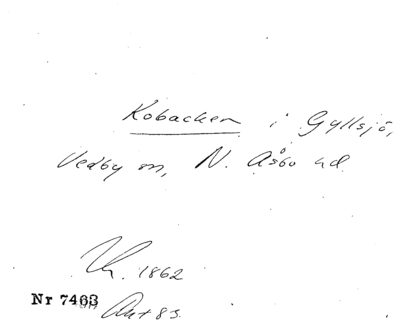 Kobacken i Gyllsjö,
Vedby sn, N. Åsbo hd
1862
Nr 7463
Akt 83.